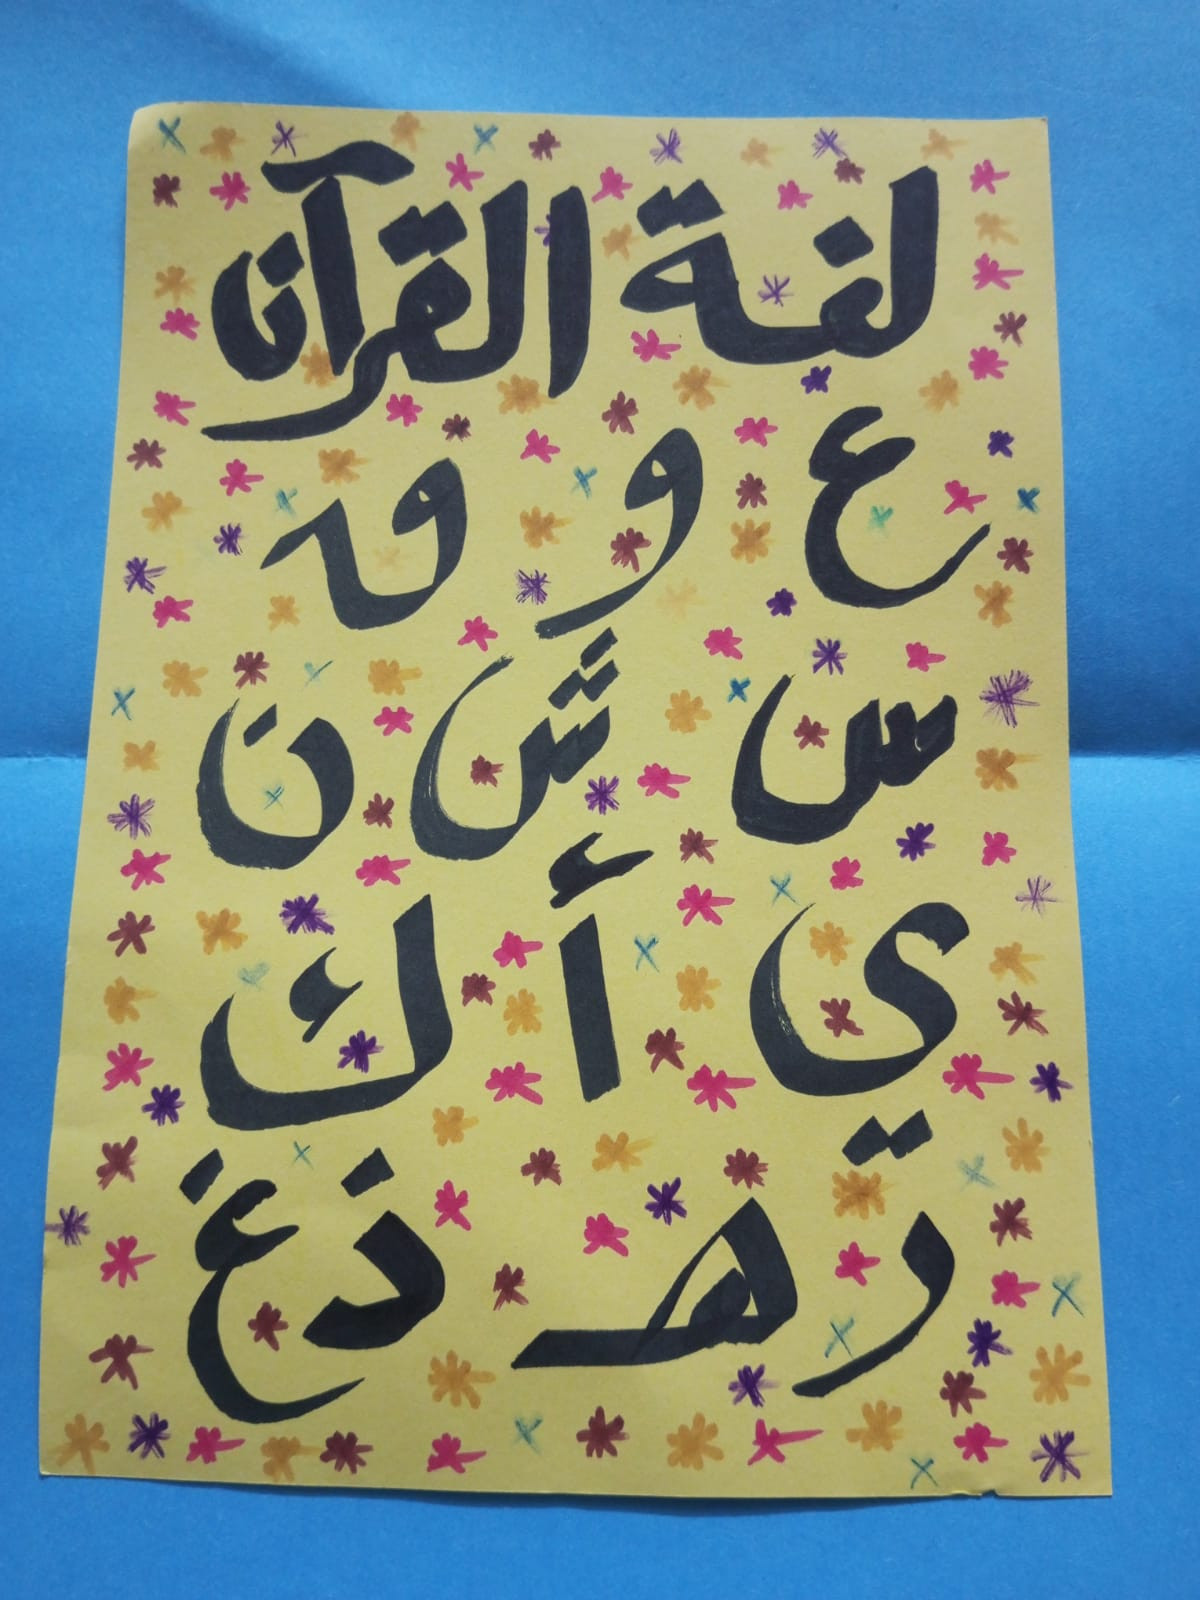 لغة القرآن
ع و
س ش ن
ي أ ك
هـ ذ غ